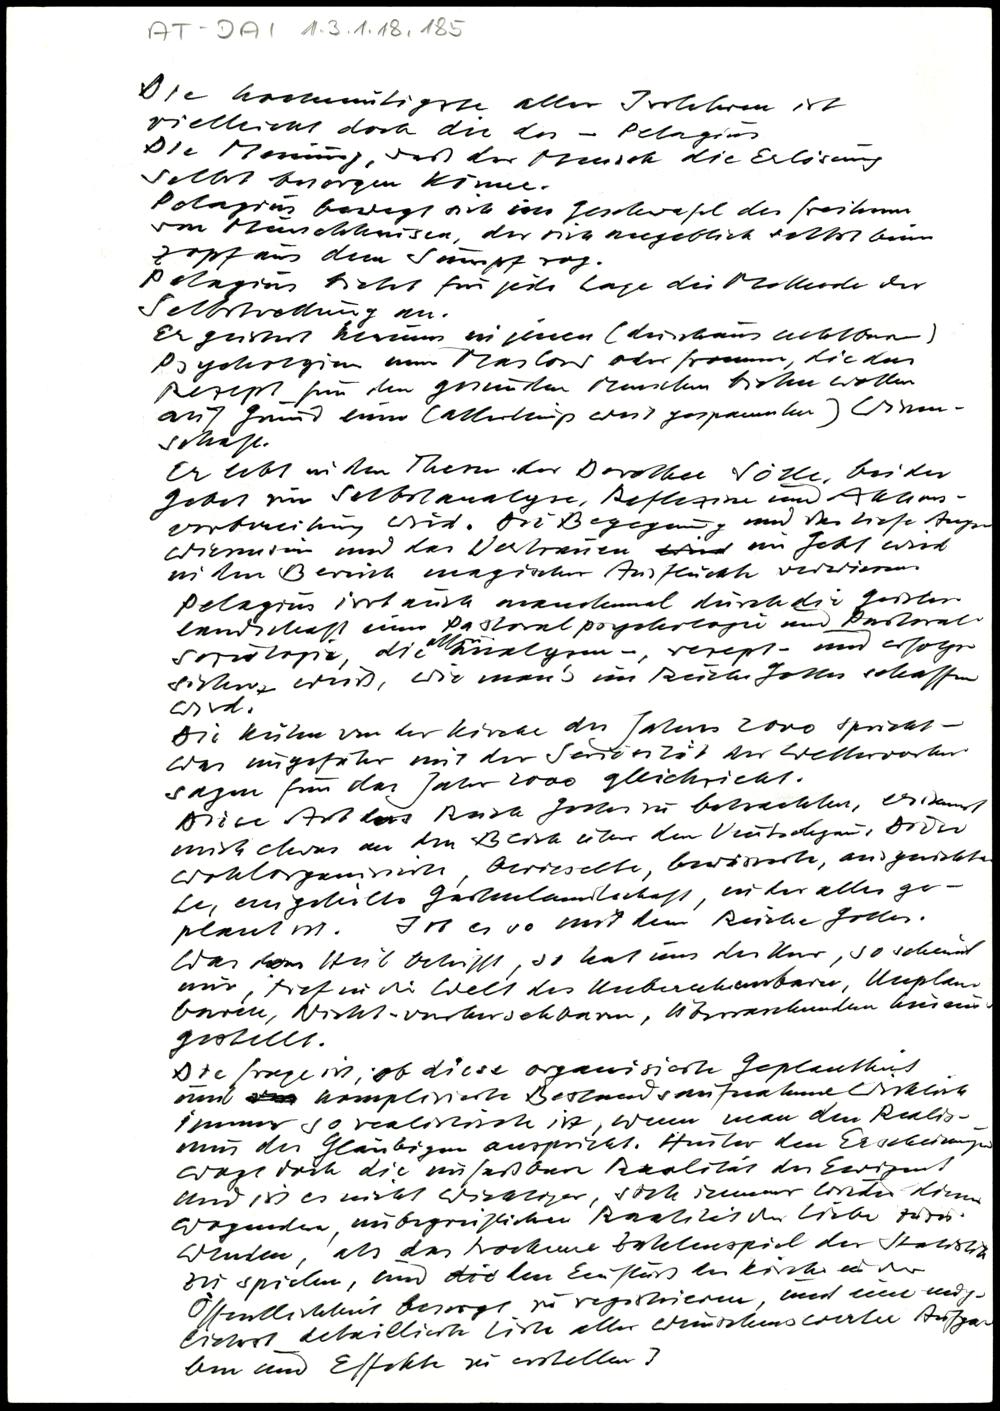 AT-DAI 1.3.1.18.185
Die hochmütigste aller Irrlehren ist
vielleicht doch die des - Pelagius
Die Meinung, daß der Mensch die Erlösung
selbst besorgen könne.
Pelagius bewegt sich im Geschwafel des Freiherrn
von Münchhausen, der sich angeblich selbst beim
Zopf aus dem Sumpf zog.
Pelagius bietet für jede Lage die Methode der
Selbstrettung an.
Er geistert herum in jenen (durchaus achtbaren)
Psychologien eines Maslow oder Fromm, die das
Rezept für den gesunden Menschen bieten wollen
auf Grund einer (allerdings weit gespannten) Wissen-
schaft.
Er lebt in den Thesen der Dorothee Sölle, bei der
Gebet zur Selbstanalyse, Reflexion und Aktions-
vorbereitung wird. Die Begegnung und das tiefe
und das Vertrauen im Gebet wird
in den Bereich magischer Ausflüchte verwiesen.
Pelagius irrt auch manchmal durch die Geister-
landschaft einer Pastoralpsychologie und Pastoral-
soziologie, die analysen-, rezept- und erfolgs-
sicher weiß, wie man's im Reiche Gottes schaffen
wird.
Die kühn von der Kirche des Jahres 2000 spricht -
was ungefähr mit der Seriosität der Wettervorher-
sagen für das Jahr 2000 gleichzieht.
Diese Art das Reich Gottes zu betrachten, erinnert
mich etwas an den Blick über den Vintschgau. Diese
wohlorganisierte, berieselte, bewässerte, ausgerichte-
te, eingeteilte Gartenlandschaft, in der alles ge-
plant ist. Ist es so mit dem Reiche Gottes.
Was das Heil betrifft, so hat uns der Herr, so scheint
mir, tief in die Welt des Unüberschaubaren, Unplan-
baren, Nicht-vorhersehbaren, Überraschenden hinein-
gestellt.
Die Frage ist, ob diese organisierte Geplantheit
und komplizierte Bestandsaufnahme wirklich
immer so realistisch ist, wenn man den Realis-
mus des Gläubigen anspricht. Hinter den Erscheinungen
wogt doch die unfaßbare Realität des Ewigen
Und ist es nicht wichtiger, sich immer wieder dieser
wogenden, unbegreiflichen Realität der Liebe zuzu-
wenden, als das trockene Zahlenspiel der Statistik
zu spielen, und den Einfluss der Kirche in der
Öffentlichkeit besorgt zu registrieren, und eine mög-
lichst detaillierte Liste aller wünschenswerten Aufga-
ben und Effekte zu erstellen?